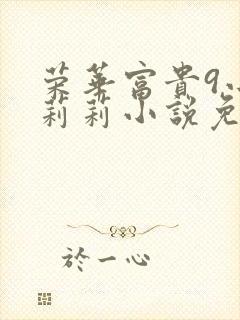 荣华富貴9
莉莉小説免
於一心